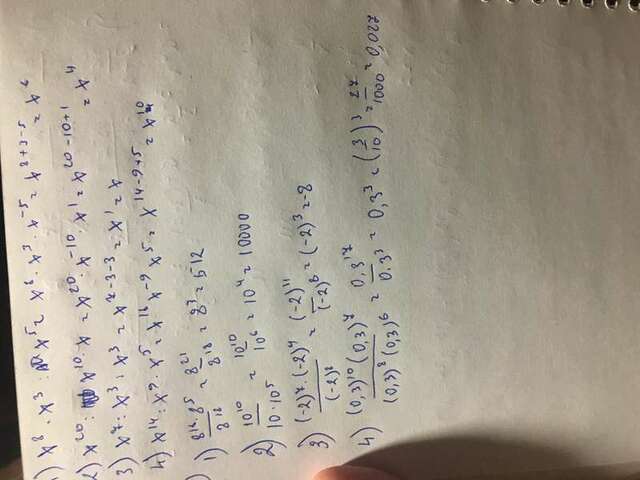 1) x⁸ · x³ : x⁵ = x⁸ · x³ · x⁻⁵ = x⁸⁺³⁻⁵ = x⁶
2) x²⁰ : x¹⁰ · x = x²⁰ · x⁻¹⁰ x¹ = x²⁰⁻¹⁰⁺¹ = x¹¹
3) x⁷ : x³ : x³ = x⁷⁻³⁻³ = x¹ = x
4) x¹⁴ : x⁹ · x⁵ = x¹⁴ x⁻⁹ x⁵ = x¹⁴⁻⁹⁺⁵ = x¹⁰
1) 8¹⁶·8⁵ / 8¹⁸ = 8²¹ / 8¹⁸ = 8³ = 512
2) 10¹⁰ / 10·10⁵ = 10¹⁰ / 10⁶ = 10⁴ = 10000
3) (-2)⁷·(-2)⁴ / (-2)⁸ = (-2)¹¹ / (-2)⁸ = (-2)³ = -8
4) (0,3)¹⁰ (0,3)⁷ / (0,3)⁸ (0,3)⁶ = 0,3¹⁷ / 0.3³ = 0,3³ = (3/10)³ = 27/1000 = 0,027